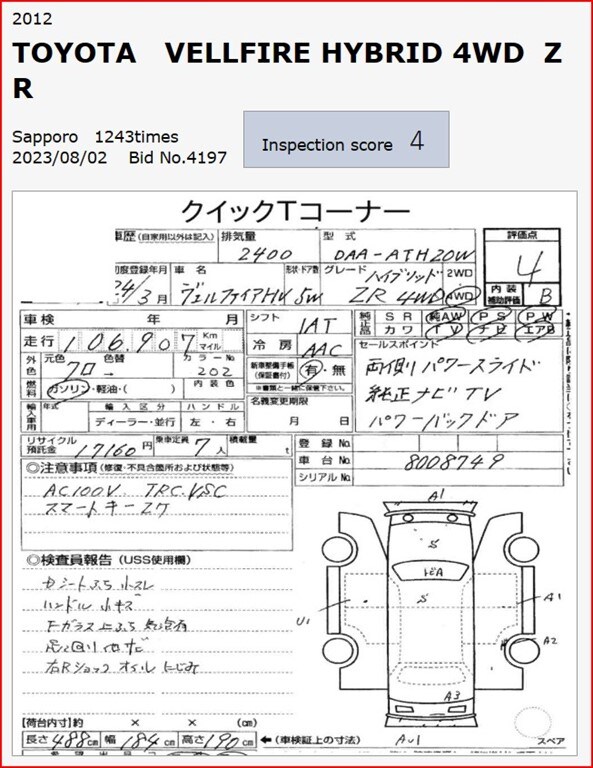 2012
TOYOTA VELLFIRE HYBRID 4WD Z
R
Sapporo 1243times
2023/08/02 Bid No.4197
Inspection score 4
クイックTコーナー
車歴(自家用以外は記入) 排気量 型式 評価点
2400 DAA-ATH20W 4
初度登録年月 車名 形状・ドア数 グレード ハイブリッド 2WD
24/3月 ヴェルファイアHV 5W ZR 4WD AWD 内装補助評価 B
車検 年 月 シフト IAT 純正品 SR 純AW PS PW
カワ TV ナビ エアB
走行 106,907 Km マイル 冷房 AAC セールスポイント
外色 元色 色替 カラーNo 新車整備手帳(保証書付) 有・無
クロ → 202 ※書類と一緒に保管下さい。
両側パワースライド
純正ナビTV
パワーバックドア
燃料 ガソリン・軽油・( ) 内装色 名義変更期限
月 日
輸入車用 年式 輸入区分 ハンドル
ディーラー・並行 左・右
リサイクル預託金 17160円 乗車定員 7人 積載量 t 登録No.
車台No. 8008749
シリアルNo.
◎注意事項(修復・不具合箇所および状態等)
AC100V TRC.VSC
スマートキー2ケ
◎検査員報告(USS使用欄)
ハンドル 小キズ
Fガラス上ふち 気泡有
右Rショック オイルにじみ
A1
S
S
U1
A1
A2
A3
スペア
【荷台内寸】約 × × (cm)
長さ 488cm 幅 184cm 高さ 190cm ←(車検証上の寸法)